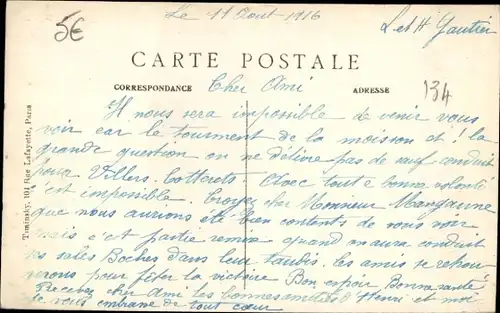 5€
Le 11 Aout 1916
L et H Gautier
CARTE POSTALE
CORRESPONDANCE
Cher Ami
ADRESSE
134
Il nous sera impossible de venir vous
voir car le tourment de la moisson et! la
grande question on ne délivre pas de sauf conduit
pour Villers. Cotterets. Avec toute bonne volonté
c'est impossible. Croyez cher Monsieur
que nous aurions été bien contents de vous voir
mais c'est partie remise quand on aura conduit
les sales Boches dans leur taudis. les amis se retrou
verons pour fêter la victoire Bon espoir Bonne santé
Recevez cher Ami les bonnes amitiés d'Henri et moi
Je vous embrasse de tout cœur
Tuminsky, 104 Rue Lafayette, Paris